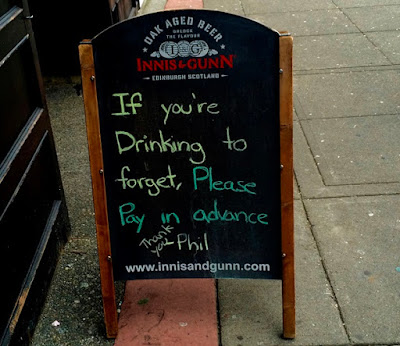 OAK AGED BEER
UNLOCK
THE FLAVOUR
I&G
INNIS&GUNN
EDINBURGH SCOTLAND
If you're
Drinking to
forget, Please
Pay in advance
Thank you Phil
www.innisandgunn.com